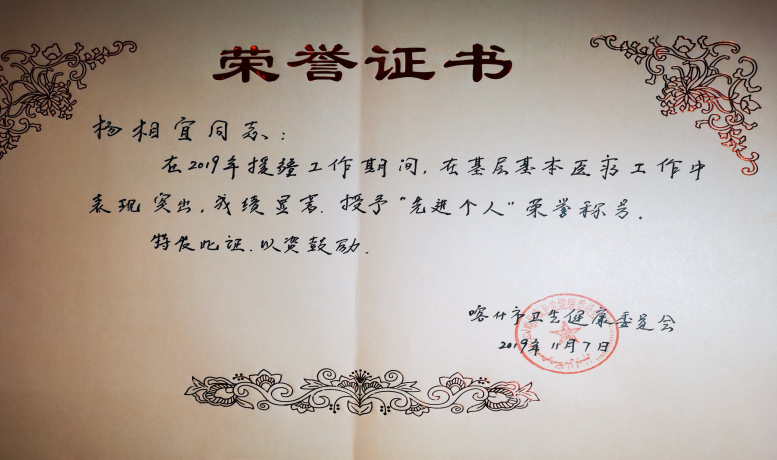 荣誉证书
杨相宜同志：
在2019年援疆工作期间，在基层基本医疗工作中
表现突出，成绩显著．授予“先进个人”荣誉称号．
特发此证．以资鼓励．
喀什市卫生健康委员会
2019年11月7日